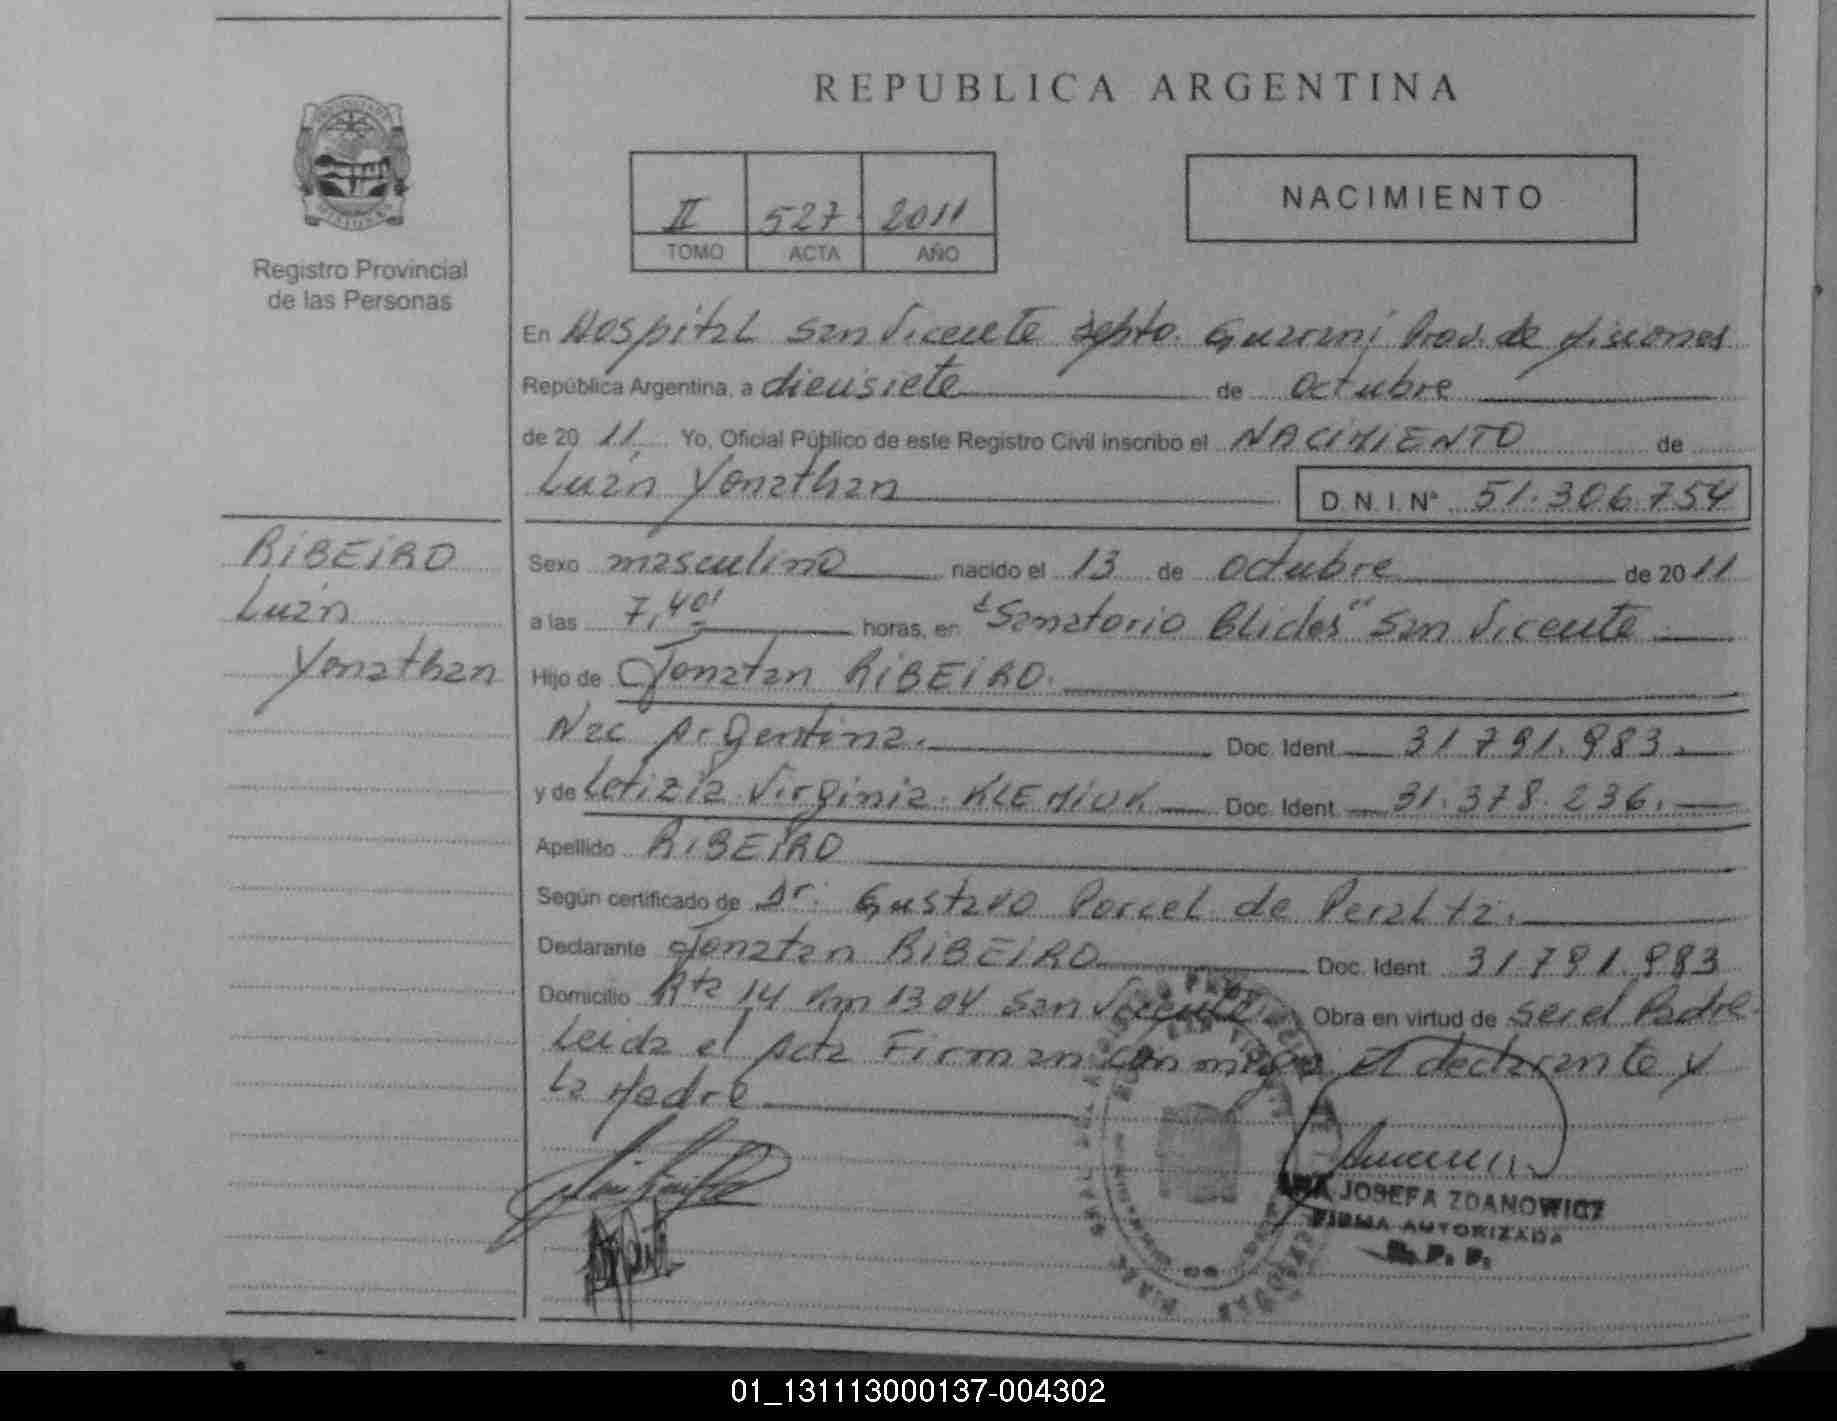 REPUBLICA ARGENTINA
II 527 2011
TOMO ACTA AÑO
NACIMIENTO
MISIONES
Registro Provincial
de las Personas
En Hospital San Vicente Depto. Guarani Prov. de Misiones
República Argentina, a diecisiete de Octubre
de 20 11 Yo, Oficial Público de este Registro Civil inscribo el NACIMIENTO de
Luan Yonathan D.N.I. Nº 51.306.754
RIBEIRO
Luan
Yonathan
Sexo masculino nacido el 13 de Octubre de 20 11
a las 7,40' horas, en "Sanatorio Blides" San Vicente
Hijo de Jonatan RIBEIRO.
Nac Argentina. Doc. Ident. 31791.983.
y de Letizia Virginia KLEMIUK Doc. Ident. 31.378.236.
Apellido RIBEIRO
Según certificado de Dr. Gustavo Porcel de Peralta.
Declarante Jonatan RIBEIRO Doc. Ident. 31791.983
Domicilio Rta 14 Km 1304 San Vicente Obra en virtud de ser el Padre
Leida el Acta Firman conmigo El declarante y
La Madre
JOSEFA ZDANOWICZ
FIRMA AUTORIZADA
R. P. P.
01_131113000137-004302